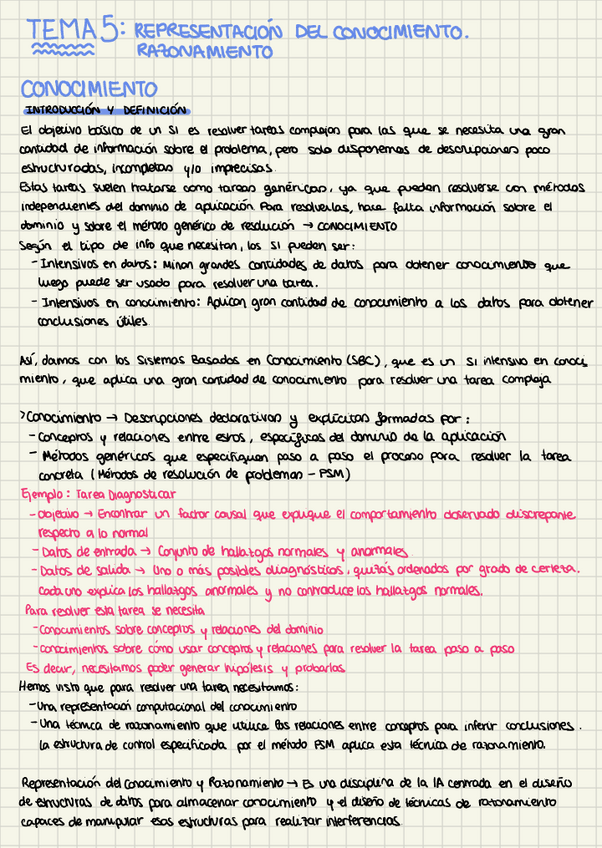 TEMA 5: REPRESENTACIÓN DEL CONOCIMIENTO.
RAZONAMIENTO
CONOCIMIENTO
INTRODUCCIÓN Y DEFINICIÓN
El objetivo básico de un SI es resolver tareas complejas para las que se necesita una gran
cantidad de información sobre el problema, pero solo disponemos de descripciones poco
estructuradas, incompletas y/o imprecisas.
Estas tareas suelen tratarse como tareas genéricas, ya que pueden resolverse con métodos
independientes del dominio de aplicación. Para resolverlas, hace falta información sobre el
dominio y sobre el método genérico de resolución → CONOCIMIENTO
Según el tipo de info que necesitan, los SI pueden ser:
- Intensivos en datos: Minan grandes cantidades de datos para obtener conocimiento que
luego puede ser usado para resolver una tarea.
- Intensivos en conocimiento: Aplican gran cantidad de conocimiento a los datos para obtener
conclusiones útiles
Así, damos con los Sistemas Basados en Conocimiento (SBC), que es un SI intensivo en conoci
miento, que aplica una gran cantidad de conocimiento para resolver una tarea compleja
>Conocimiento → Descripciones declarativas y explícitas formadas por:
- Conceptos y relaciones entre estos, específicas del dominio de la aplicación
- Métodos genéricos que especifiquen paso a paso el proceso para resolver la tarea
concreta (Métodos de resolución de problemas - PSM)
Ejemplo: Tarea Diagnosticar
- Objetivo → Encontrar un factor causal que explique el comportamiento observado discrepante
respecto a lo normal
- Datos de entrada → Conjunto de hallazgos normales y anormales
- Datos de salida → Uno o más posibles diagnósticos, quizás ordenados por grado de certeza.
Cada uno explica los hallazgos anormales y no contradice los hallazgos normales.
Para resolver esta tarea se necesita
- Conocimientos sobre conceptos y relaciones del dominio
- Conocimientos sobre cómo usar conceptos y relaciones para resolver la tarea paso a paso
Es decir, necesitamos poder generar hipótesis y probarlas
Hemos visto que para resolver una tarea necesitamos:
- Una representación computacional del conocimiento
- Una técnica de razonamiento que utilice las relaciones entre conceptos para inferir conclusiones.
la estructura de control especificada por el método PSM aplica esta técnica de razonamiento.
Representación del Conocimiento y Razonamiento → Es una disciplina de la IA centrada en el diseño
de estructuras de datos para almacenar conocimiento y el diseño de técnicas de razonamiento
capaces de manipular esas estructuras para realizar interferencias